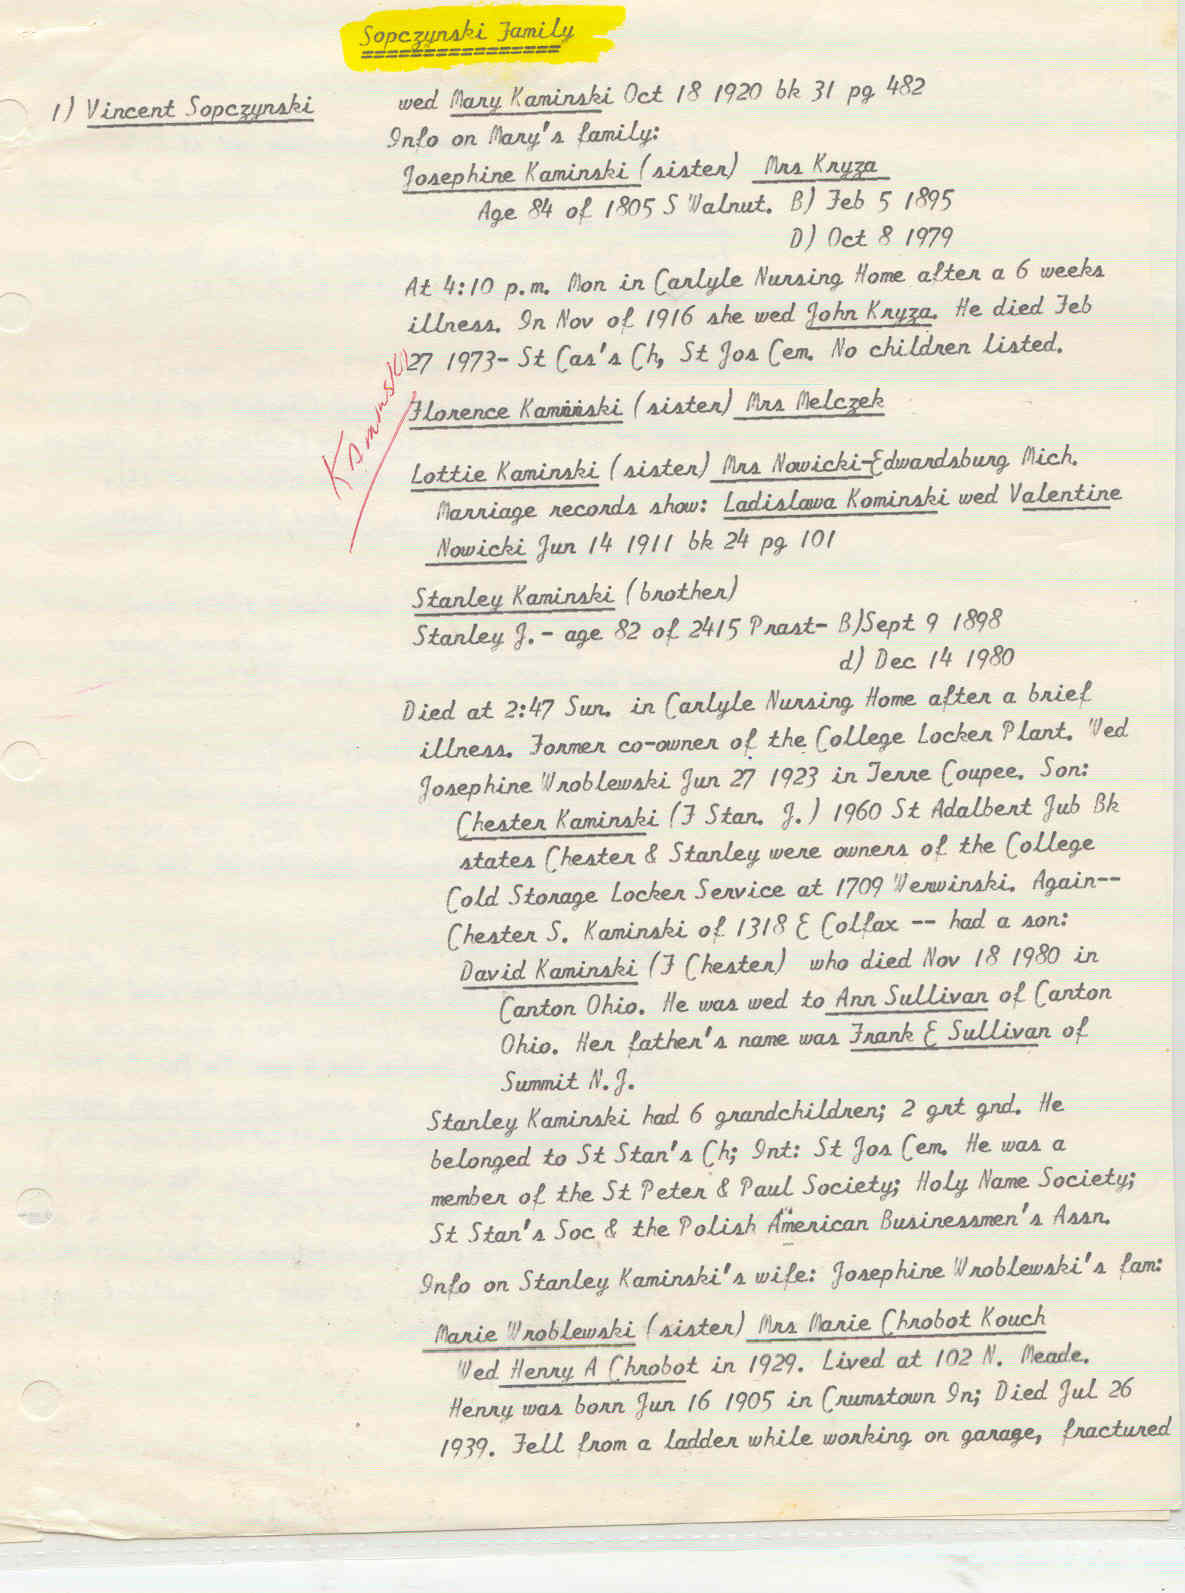 Sopczynski Family
1) Vincent Sopczynski
wed Mary Kaminski Oct 18 1920 bk 31 pg 482
Info on Mary's family:
Josephine Kaminski (sister) Mrs Kryza
Age 84 of 1805 S Walnut. B) Feb 5 1895
D) Oct 8 1979
At 4:10 p.m. Mon in Carlyle Nursing Home after a 6 weeks
illness. In Nov of 1916 she wed John Kryza. He died Feb
27 1973- St Cas's Ch, St Jos Cem. No children listed.
Kaminski
Florence Kaminski (sister) Mrs Melczek
Lottie Kaminski (sister) Mrs Nowicki-Edwardsburg Mich.
Marriage records show: Ladislawa Kominski wed Valentine
Nowicki Jun 14 1911 bk 24 pg 101
Stanley Kaminski (brother)
Stanley J. - age 82 of 2415 Prast- B)Sept 9 1898
d) Dec 14 1980
Died at 2:47 Sun. in Carlyle Nursing Home after a brief
illness. Former co-owner of the College Locker Plant. Wed
Josephine Wroblewski Jun 27 1923 in Terre Coupee. Son:
Chester Kaminski (F Stan. J.) 1960 St Adalbert Jub Bk
states Chester & Stanley were owners of the College
Cold Storage Locker Service at 1709 Werwinski. Again--
Chester S. Kaminski of 1318 E Colfax -- had a son:
David Kaminski (F Chester) who died Nov 18 1980 in
Canton Ohio. He was wed to Ann Sullivan of Canton
Ohio. Her father's name was Frank E Sullivan of
Summit N.J.
Stanley Kaminski had 6 grandchildren; 2 grt gnd. He
belonged to St Stan's Ch; Int: St Jos Cem. He was a
member of the St Peter & Paul Society; Holy Name Society;
St Stan's Soc & the Polish American Businessmen's Assn.
Info on Stanley Kaminski's wife: Josephine Wroblewski's fam:
Marie Wroblewski (sister) Mrs Marie Chrobot Kouch
Wed Henry A Chrobot in 1929. Lived at 102 N. Meade.
Henry was born Jun 16 1905 in Crumstown In; Died Jul 26
1939. Fell from a ladder while working on garage, fractured